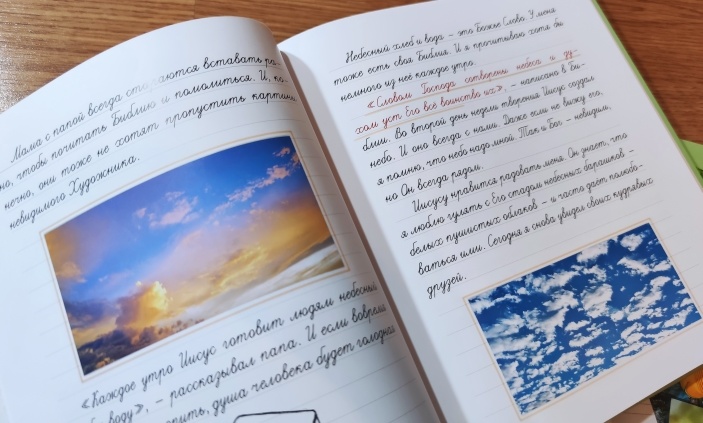 Мама с папой всегда стараются вставать ра-
но, чтобы почитать Библию и помолиться. И, ко-
нечно, они тоже не хотят пропустить картины
невидимого Художника.
«Каждое утро Иисус готовит людям небесный
воду», – рассказывал папа. И если вовремя
душа человека будет голодная
Небесный хлеб и вода – это Божье Слово. У меня
тоже есть своя Библия. И я прочитываю хотя бы
немного из неё каждое утро.
«Словом Господа сотворены небеса и ду-
хом уст Его всё воинство их», – написано в Би-
блии. Во второй день недели творения Иисус создал
небо. И оно всегда с нами. Даже если не вижу его,
я помню, что небо надо мной. Так и Бог – невидим,
но Он всегда рядом.
Иисусу нравится радовать меня. Он знает, что
я люблю гулять с Его стадом небесных барашков –
белых пушистых облаков – и часто даёт полюбо-
ваться ими. Сегодня я снова увидел своих кудрявых
друзей.